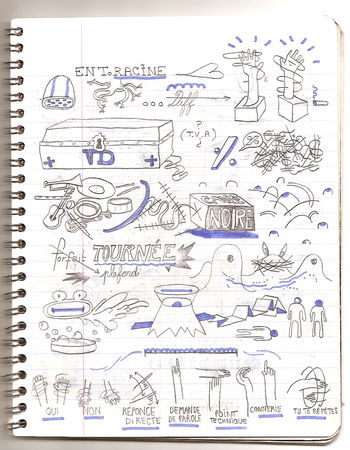 ENT. RACINE
... Diff
?
(T.V.A)
?
%
VD
NOIRE
forfait TOURNÉE
plafond
OUI
NON
RÉPONCE DIRECTE
DEMANDE DE PAROLE
POINT TECHNIQUE
CONNERIE
TU TE RÉPÈTES